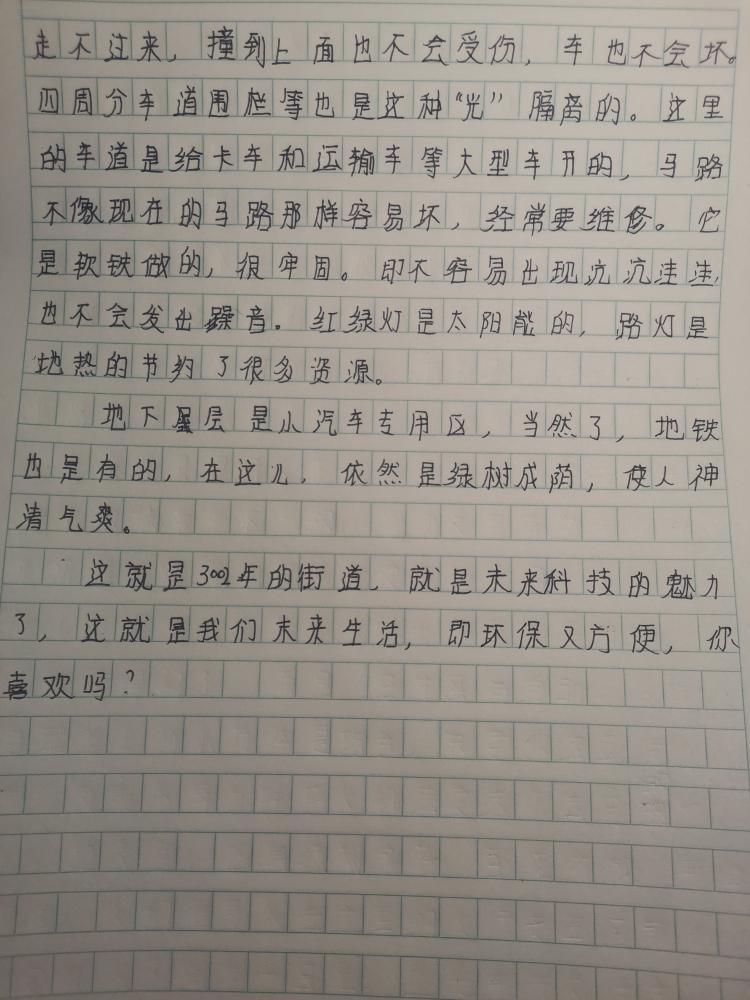 走不过来，撞到上面也不会受伤，车也不会坏。
四周分车道围栏等也是这种“光”隔离的。这里
的车道是给卡车和运输车等大型车开的，马路
不像现在的马路那样容易坏，经常要维修。它
是软铁做的，很牢固。即不容易出现坑坑洼洼，
也不会发出躁音。红绿灯是太阳能的，路灯是
地热的节约了很多资源。
地下层是小汽车专用区，当然了，地铁
也是有的，在这儿，依然是绿树成荫，使人神
清气爽。
这就是3002年的街道，就是未来科技的魅力
了，这就是我们未来生活，即环保又方便，你
喜欢吗？